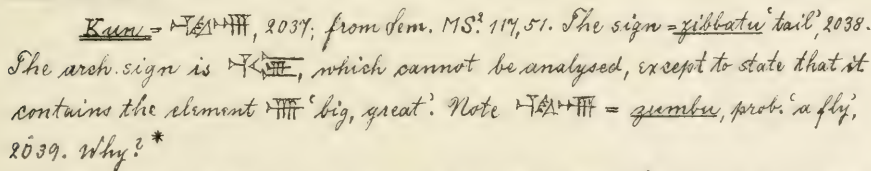 Kun = 2037; from Sem. MS². 117, 51. The sign = zibbatu 'tail', 2038.
The arch. sign is , which cannot be analysed, except to state that it
contains the element 'big, great'. Note = zumbu, prob. 'a fly',
2039. Why? *